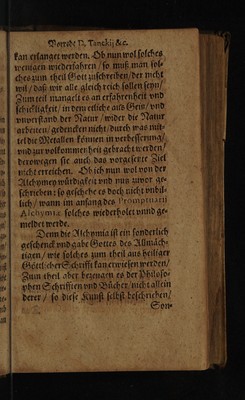 Vorrede P. Tanckij &c.
kan erlanget werden. Ob nun wol solches
wenigen wiederfahren / so muß man sol-
ches zum theil Gott zuschreiben / der nicht
wil / daß wir alle gleich reich sollen seyn /
Zum theil mangelt es an erfahrenheit und
schickligkeit / in dem etliche aus Geiz / und
unverstand der Natur / wider die Natur
arbeiten / gedencken nicht / durch was mit-
tel die Metallen können in verbesserung /
und zur vollkommenheit gebracht werden /
derowegen sie auch das vorgesetzte Ziel
nicht erreichen. Ob ich nun wol von der
Alchymey würdigkeit und nutz zuvor ge-
schrieben: so geschehe es doch nicht unbil-
lich / wann im anfang des Promptuarii
Alchymiæ solches wiederholet unnd ge-
meldet werde.
Denn die Alchymia ist ein sonderlich
geschenck und gabe Gottes des Allmäch-
tigen / wie solches zum theil aus heiliger
Göttlicher Schrifft kan erwiesen werden /
Zum theil aber bezeugen es der Philoso-
phen Schrifften und Bücher / nicht allein
derer / so diese Kunst selbst beschrieben /
Son-